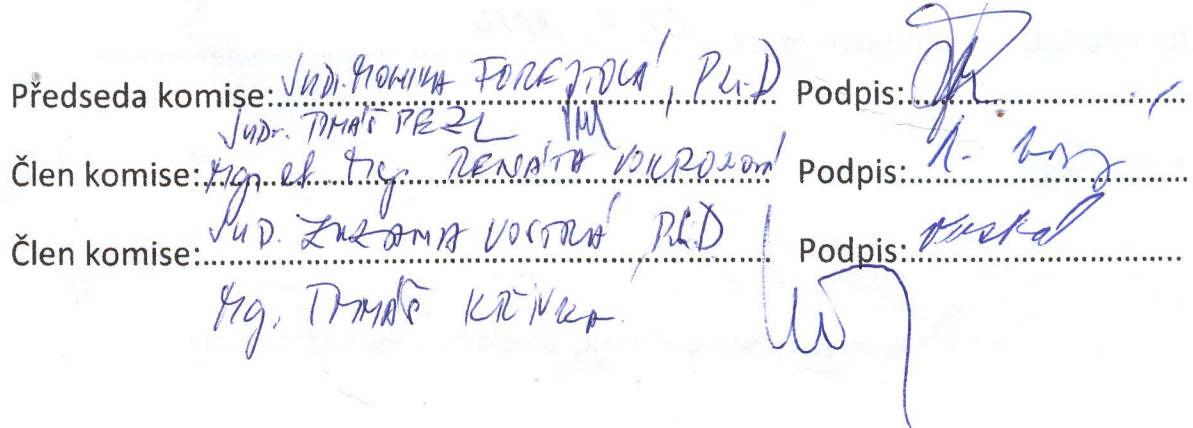 Předseda komise: JUDr. MONIKA FOREJTOVÁ, Ph.D Podpis:
JUDr. TOMÁŠ PEZL
Člen komise: Mgr. et Mgr. RENÁTA VOKROJOVÁ Podpis:
Člen komise: JUDr. ZUZANA VOSTRÁ Ph.D Podpis:
Mg. TOMÁŠ KŘIVKA